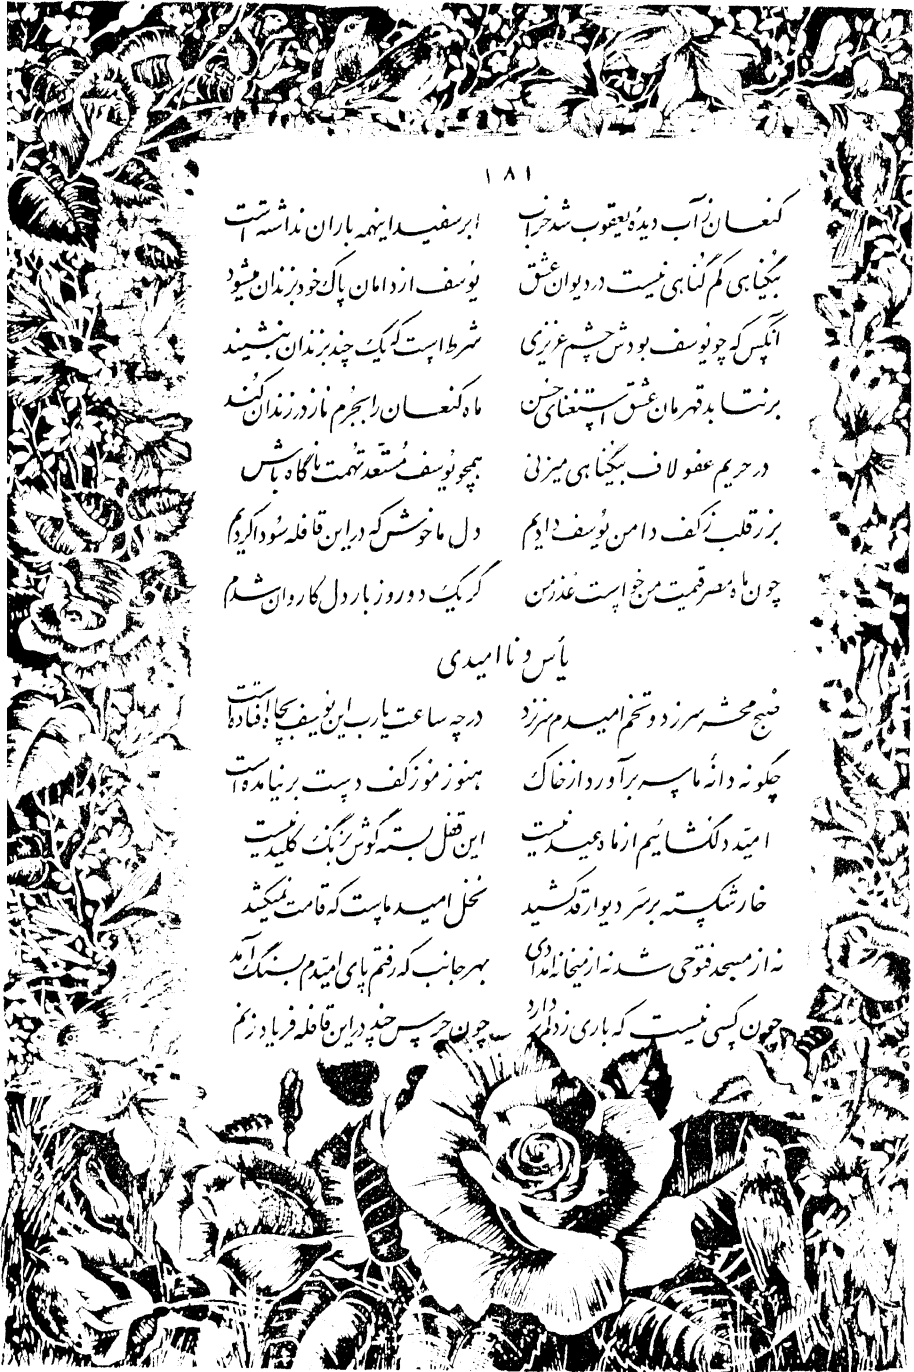 ۱۸۱
کنعان ز آب دیدهٔ یعقوب شد خراب ابر سفید اینهمه باران نداشته است
بیگناهی کم گناهی نیست در دیوان عشق یوسف از دامان پاک خود بزندان میشود
آنکس که چو یوسف بودش چشم عزیزی شرط است که یک چند بزندان بنشیند
برنتابد قهرمان عشق استغنای حسن ماه کنعان را بجرم ناز در زندان کند
در حریم عفو لاف بیگناهی میزنی همچو یوسف مستعد تهمت ناگاه باش
بزر قلب ز کف دامن یوسف دادیم دل ما خوش که در این قافله سودا کردیم
چون ماه مصر قیمت من خواست عذر من گر یک دو روز بار دل کاروان شدم
یأس و ناامیدی
صبح محشر سر زد و تخم امیدم سر نزد در چه ساعت یارب این یوسف بچاه افتاده است
چگونه دانهٔ ما سر برآورد از خاک هنوز نوز کف دست برنیامده است
امید دلگشائیم از ماه عید نیست این قفل بسته گوش بزنگ کلید نیست
خار شکسته بر سر دیوار قد کشید نخل امید ماست که قامت نمیکشد
نه از مسجد فتوحی شد نه از میخانه امدادی بهر جانب که رفتم پای امیدم بسنگ آمد
چون کسی نیست که باری ز دلم بردارد چون جرس چند در این قافله فریاد زنم